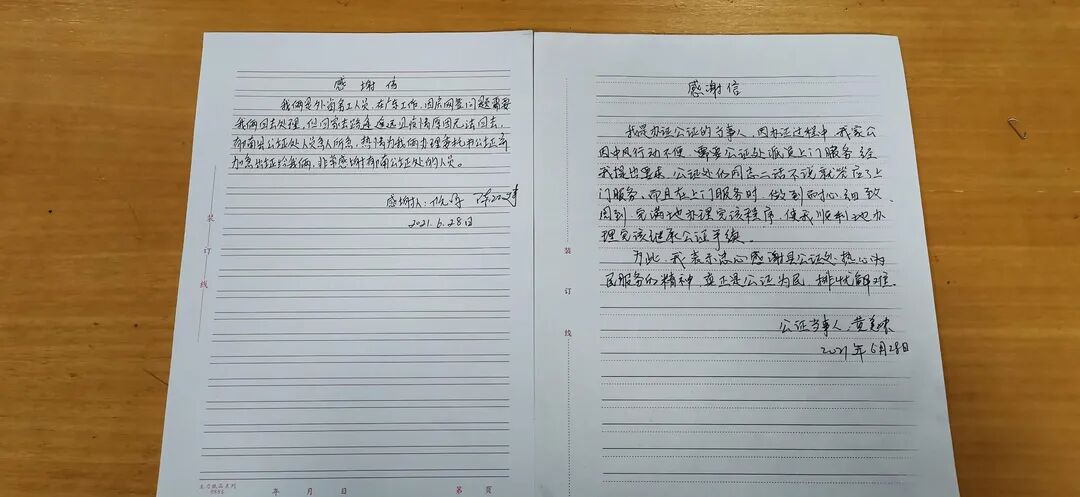 感谢信
我俩是外省务工人员,在广东工作,因房网签问题需要
我俩回去处理,但回家去路途遥远且疫情原因无法回去,
南县公证处人员急人所急,热情为我俩办理委托书公证并
加急出证给我俩,非常感谢南公证处的人员。
感谢人:
2021.6.28日
装
订
线
年 月 日
第 页
感谢信
我是办证公证的当事人,因办证过程中,我家公
因中风行动不便,需要公证处派员上门服务,经
我提出要求,公证处的同志二话不说就答应了上
门服务,而且在上门服务时,做到耐心细致
周到,完满地办理完该程序,使我顺利地办
理完该继承公证手续。
为此,我表示衷心感谢县公证处热心为
民服务的精神,真正是公证为民,排忧解难。
公证当事人:黄
2021年6月28日
装
订
线